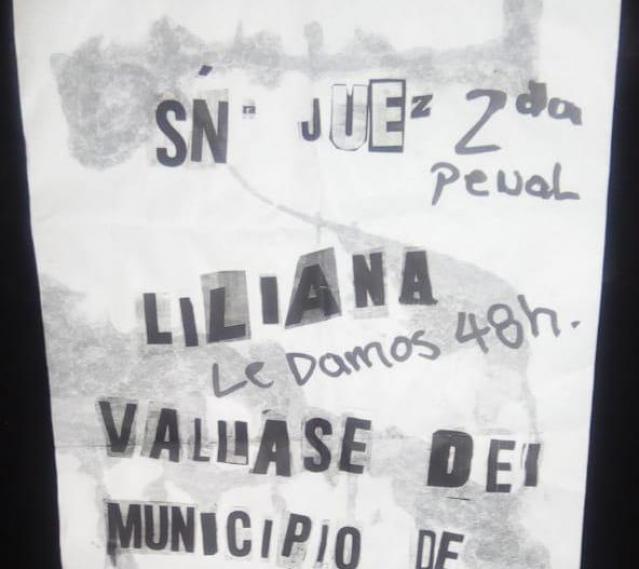 SŃR JUEZ 2da
PeNaL
LILIANA
Le Damos 48h.
VALLASE DEl
MUNICIPIO DE